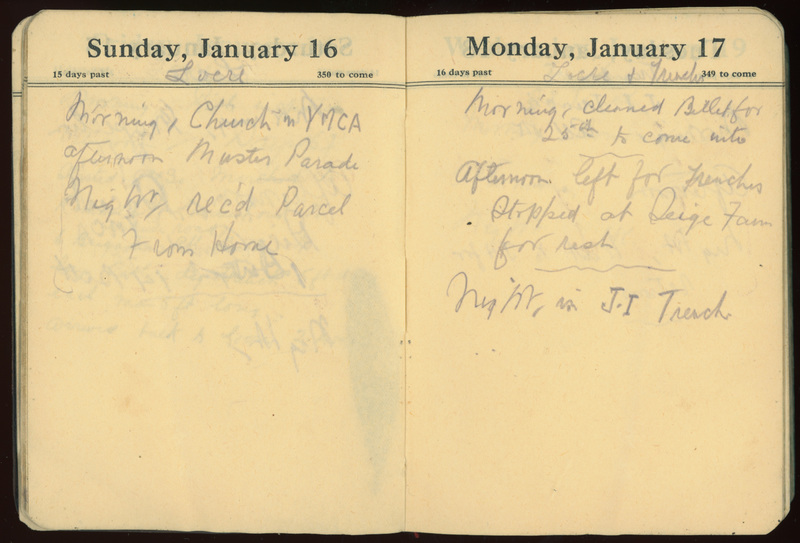 Sunday, January 16
15 days past 350 to come
Locre
Morning, Church in YMCA
afternoon Muster Parade
Night, rec'd Parcel
From Home
Monday, January 17
16 days past 349 to come
Locre & Trenches
Morning, cleaned Billet for
25th to come into
Afternoon left for Trenches
Stopped at Seige Farm
for rest
Night, in J.I Trench